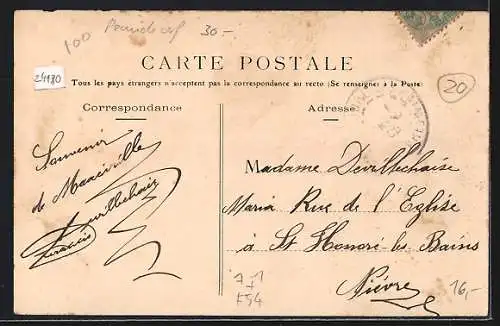 100 30-
CARTE POSTALE
24180
20
Tous les pays étrangers n'acceptent pas la correspondance au recto (Se renseigner à la Poste)
Correspondance
Adresse
Souvenir
de Maxéville
Devillechaise
Francis
Madame Devillechaise
Maria Rue de l'Eglise
à St Honoré les Bains
Nièvre
7+1
F54
16,-